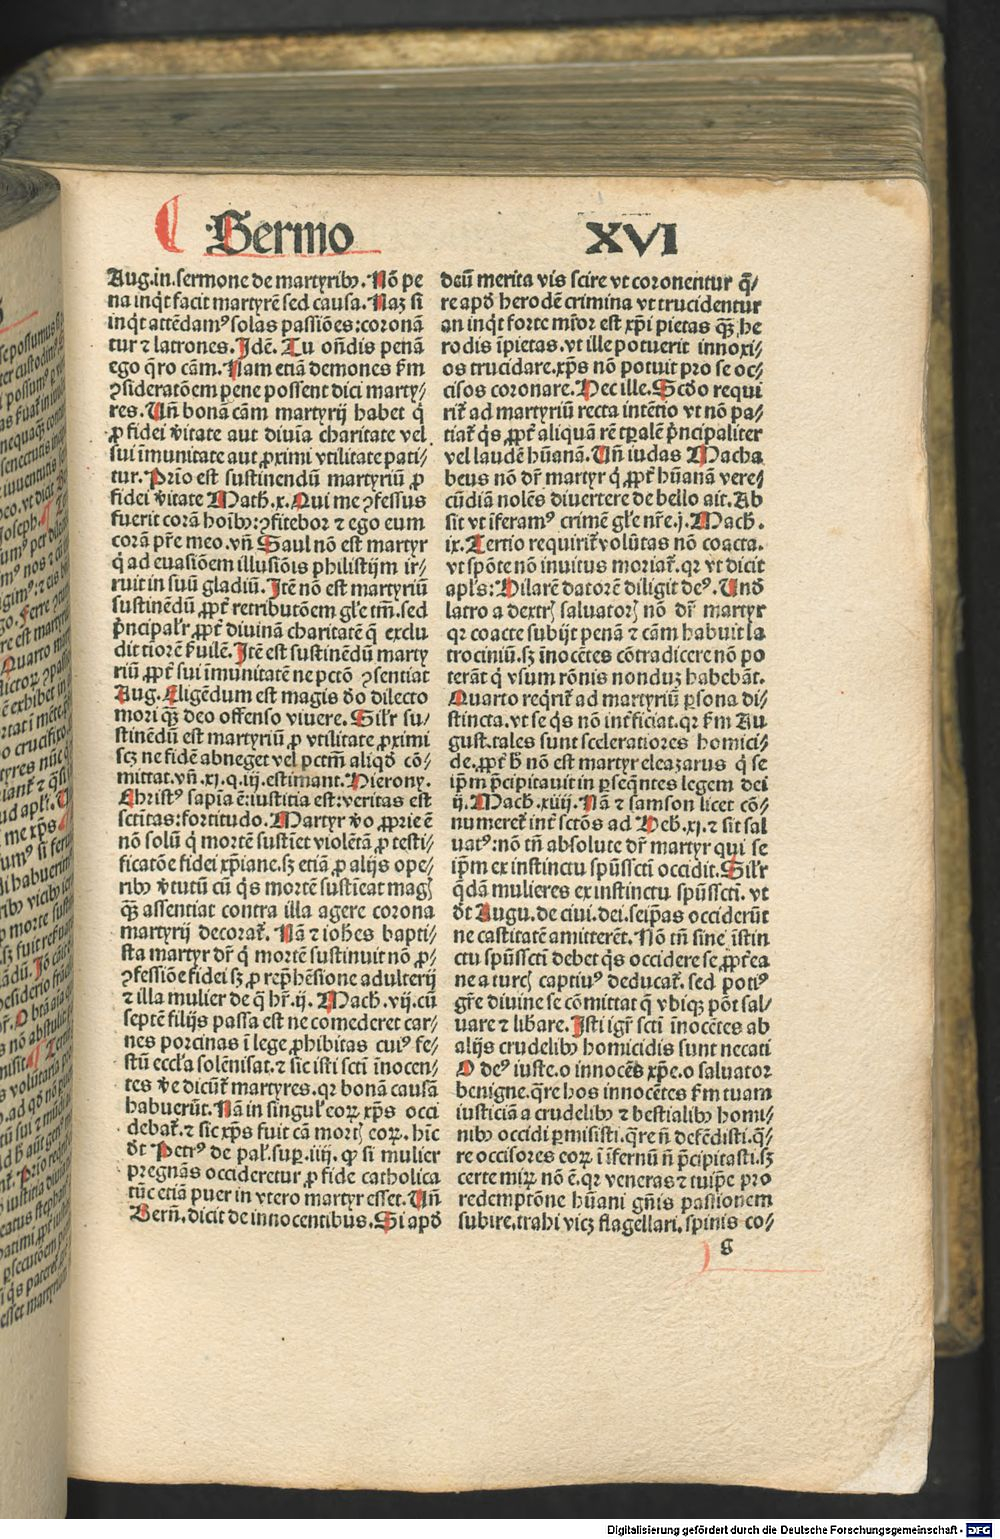 Sermo XVI
Aug.in.sermone de martyribꝫ. Nõ pe
na inq̃t facit martyrẽ sed causa. Naȝ si
inq̃t attẽdamꝰ solas passiões: coronã
tur ⁊ latrones. Idẽ. Tu oñdis penã
ego q̃ro cãm. Nam etiã demones ẜm
ↄsideratõem pene possent dici marty-
res. Uñ bonã cãm martyrij habet q̃
ꝓ fidei v̾itate aut diuĩa charitate vel
sui ĩmunitate aut ꝓximi vtilitate pati-
tur. Prĩo est sustinendũ martyriũ ꝓ
fidei v̾itate Math.x. Qui me ↄfessus
fuerit corã hoĩbꝫ: ↄfitebor ⁊ ego eum
corã pr̃e meo. vñ Saul nõ est martyr
q̃ ad euasiõem illusiõis philistijm ir-
ruit in suũ gladiũ. Itẽ nõ est martyriũ
sustinẽdũ ꝓpt̃ retributõem gl̃e tm̃. sed
p̃ncipal̃r ꝓpt̃ diuinã charitatẽ q̃ exclu
dit tiorẽ s̃uilẽ. Itẽ est sustinẽdũ marty
riũ ꝓpt̃ sui ĩmunitatẽ ne pctõ ↄsentiat
Aug. Eligẽdum est magis d̾o dilecto
mori qꝫ̃ deo offenso viuere. Sil̃r su-
stinẽdũ est martyriũ ꝓ vtilitate ꝓximi
scȝ ne fidẽ abneget vel pctm̃ aliqd̾ cõ-
mittat. vñ.xj.q.iij.estimant. Hierony.
Christꝰ sapĩa ẽ: iustitia est: veritas est
sctitas: fortitudo. Martyr v̾o ꝓprie ẽ
nõ solũ q̃ mortẽ sustĩet violẽtã ꝓ testi-
ficatõe fidei xp̃iane. sȝ etiã ꝓ alijs ope-
ribꝫ v̾tutũ cũ q̃s mortẽ sustĩeat magꝭ
qꝫ̃ assentiat contra illa agere corona
martyrij decorat̃. Nã ⁊ iohẽs bapti-
sta martyr dr̃ q̃ mortẽ sustinuit nõ ꝓ-
ↄfessiõe fidei sȝ ꝓ rep̃hẽsione adulterij
⁊ illa mulier de q̃ hr̃.ij. Mach.vij.cũ
septẽ filijs passa est ne comederet car-
nes porcinas ĩ lege ꝓhibitas cuiꝰ fe-
stũ eccl̃a solẽnisat. ⁊ sic isti scti ĩnocen-
tes v̾e dicũt̃ martyres. qꝛ bonã causã
habuerũt. Nã in singul̃ eoꝝ xp̃s occi
debat̃. ⁊ sic xp̃s fuit cã mortꝭ eoꝝ. hĩc
d̾t Petrꝰ de pal̃.suꝑ.iiij. ꝙ si mulier
pregnãs occideretur ꝓ fide catholica
tũc etiã puer in vtero martyr esset. Uñ
Berñ. dicit de innocentibus. Si apd̾
deũ merita vis scire vt coronentur q̃-
re apd̾ herodẽ crimina vt trucidentur
an inq̃t forte mĩor est xp̃i pietas qꝫ̃ he
rodis ĩpietas. vt ille potuerit innoxi-
os trucidare. xp̃s nõ potuit pro se oc-
cisos coronare. Hec ille. Scd̾o requi
rit̃ ad martyriũ recta intẽtio vt nõ pa-
tiat̃ q̃s ꝓpt̃ aliquã rẽ tꝑalẽ p̃ncipaliter
vel laudẽ hũanã. Uñ iudas Macha
beus nõ dr̃ martyr q̃ ꝓpt̃ hũanã vere-
cũdiã nolẽs diuertere de bello ait. Ab
sit vt ĩferamꝰ crimẽ gl̃e nr̃e.j. Mach.
ix. Tertio requirit̃ volũtas nõ coacta.
vt spõte nõ inuitus moriat̃. qꝛ vt dicit
apl̃s: Hilarẽ datorẽ diligit deꝰ. Und̾
latro a dextrꝭ saluatorꝭ nõ dr̃ martyr
qꝛ coacte subijt penã ⁊ cãm habuit la
trociniũ. sȝ ĩnocẽtes cõtradicere nõ po
terãt q̃ vsum rõnis nonduȝ habebãt.
Quarto req̃rit̃ ad martyriũ ꝑsona di-
stincta. vt se q̃s nõ int̃ficiat. qꝛ ẜm Au
gust. tales sunt sceleratiores homici-
de. ꝓpt̃ h̾ nõ est martyr eleazarus q̃ se
ip̃m p̃cipitauit in ꝑseq̃ntes legem dei
ij. Mach.xiiij. Nã ⁊ samson licet cõ-
numeret̃ int̃ sctõs ad Heb.xj. ⁊ sit sal
uatꝰ: nõ tñ absolute dr̃ martyr qui se
ip̃m ex instinctu spũssctĩ occidit. Sil̃r
q̃dã mulieres ex instinctu spũssctĩ. vt
d̾t Augu.de ciui.dei.seip̃as occiderũt
ne castitatẽ amitterẽt. Nõ tñ sine ĩstin
ctu spũssctĩ debet q̃s occidere se, ꝓpt̃ea
ne a turcꝭ captiuꝰ deducat̃. sed potiꝰ
gr̃e diuine se cõmittat q̃ vbiqꝫ põt sal-
uare ⁊ lib̾are. Isti igr̃ sctĩ ĩnocẽtes ab
alijs crudelibꝫ homicidis sunt necati
O deꝰ iuste. o innocẽs xp̃e. o saluator
benigne. q̃re hos innocẽtes ẜm tuam
iusticiã a crudelibꝫ ⁊ bestialibꝫ homi-
nibꝫ occidi ꝑmisisti. q̃re ñ defẽdisti. q̃-
re occisores eoꝝ ĩ ĩfernũ ñ p̃cipitasti. sȝ
certe miꝝ nõ ẽ. qꝛ veneras ⁊ tuip̃e pro
redemptõne hũani gñis passionem
subire, trahi vicȝ flagellari, spinis co-
g
Digitalisierung gefördert durch die Deutsche Forschungsgemeinschaft - DFG